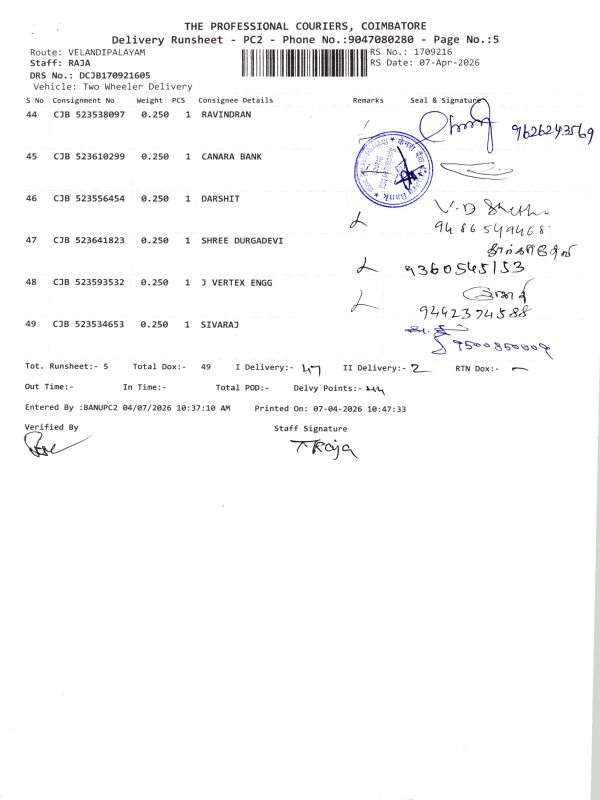 THE PROFESSIONAL COURIERS, COIMBATORE
Delivery Runsheet - PC2 - Phone No.:9047080280 - Page No.:5
Route: VELANDIPALAYAM
RS No.: 1709216
Staff: RAJA
RS Date: 07-Apr-2026
DRS No.: DCJB170921605
Vehicle: Two Wheeler Delivery
S No Consignment No Weight PCS Consignee Details Remarks Seal & Signature
44 CJB 523538097 0.250 1 RAVINDRAN
9626243569
45 CJB 523610299 0.250 1 CANARA BANK
46 CJB 523556454 0.250 1 DARSHIT
9486549468
47 CJB 523641823 0.250 1 SHREE DURGADEVI
9360545153
48 CJB 523593532 0.250 1 J VERTEX ENGG
9442374588
49 CJB 523534653 0.250 1 SIVARAJ
Tot. Runsheet:- 5 Total Dox:- 49 I Delivery:- 47 II Delivery:- 2 RTN Dox:- -
Out Time:- In Time:- Total POD:- Delvy Points:- 44
Entered By :BANUPC2 04/07/2026 10:37:10 AM Printed On: 07-04-2026 10:47:33
Verified By Staff Signature
T Raja